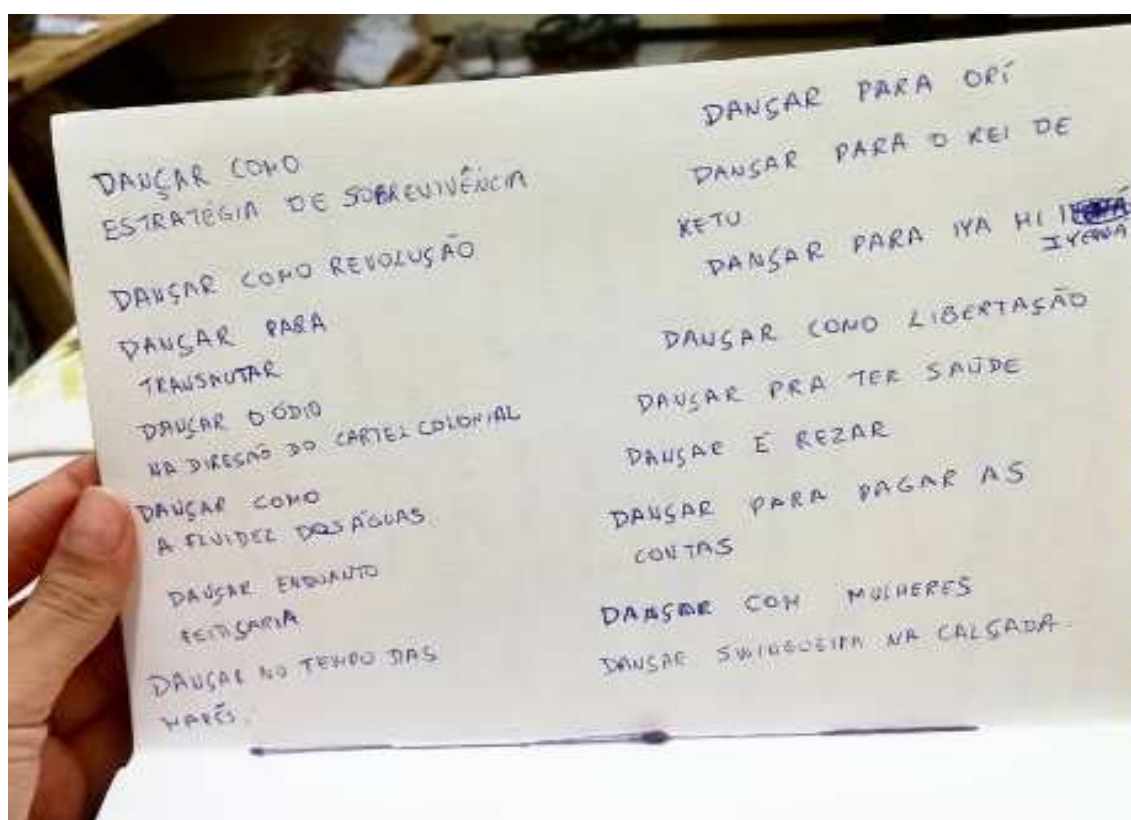 DANÇAR COMO
ESTRATÉGIA DE SOBREVIVÊNCIA
DANÇAR COMO REVOLUÇÃO
DANÇAR PARA
TRANSMUTAR
DANÇAR O ÓDIO
NA DIREÇÃO DO CARTEL COLONIAL
DANÇAR COMO
A FLUIDEZ DAS ÁGUAS
DANÇAR ENQUANTO
FEITIÇARIA
DANÇAR NO TEMPO DAS
MARÉS.
DANÇAR PARA ORÍ
DANÇAR PARA O REI DE
KETU
DANÇAR PARA IYA MI
DANÇAR COMO LIBERTAÇÃO
DANÇAR PRA TER SAÚDE
DANÇAR É REZAR
DANÇAR PARA PAGAR AS
CONTAS
DANÇAR COM MULHERES
DANÇAR SWINGUEIRA NA CALÇADA.